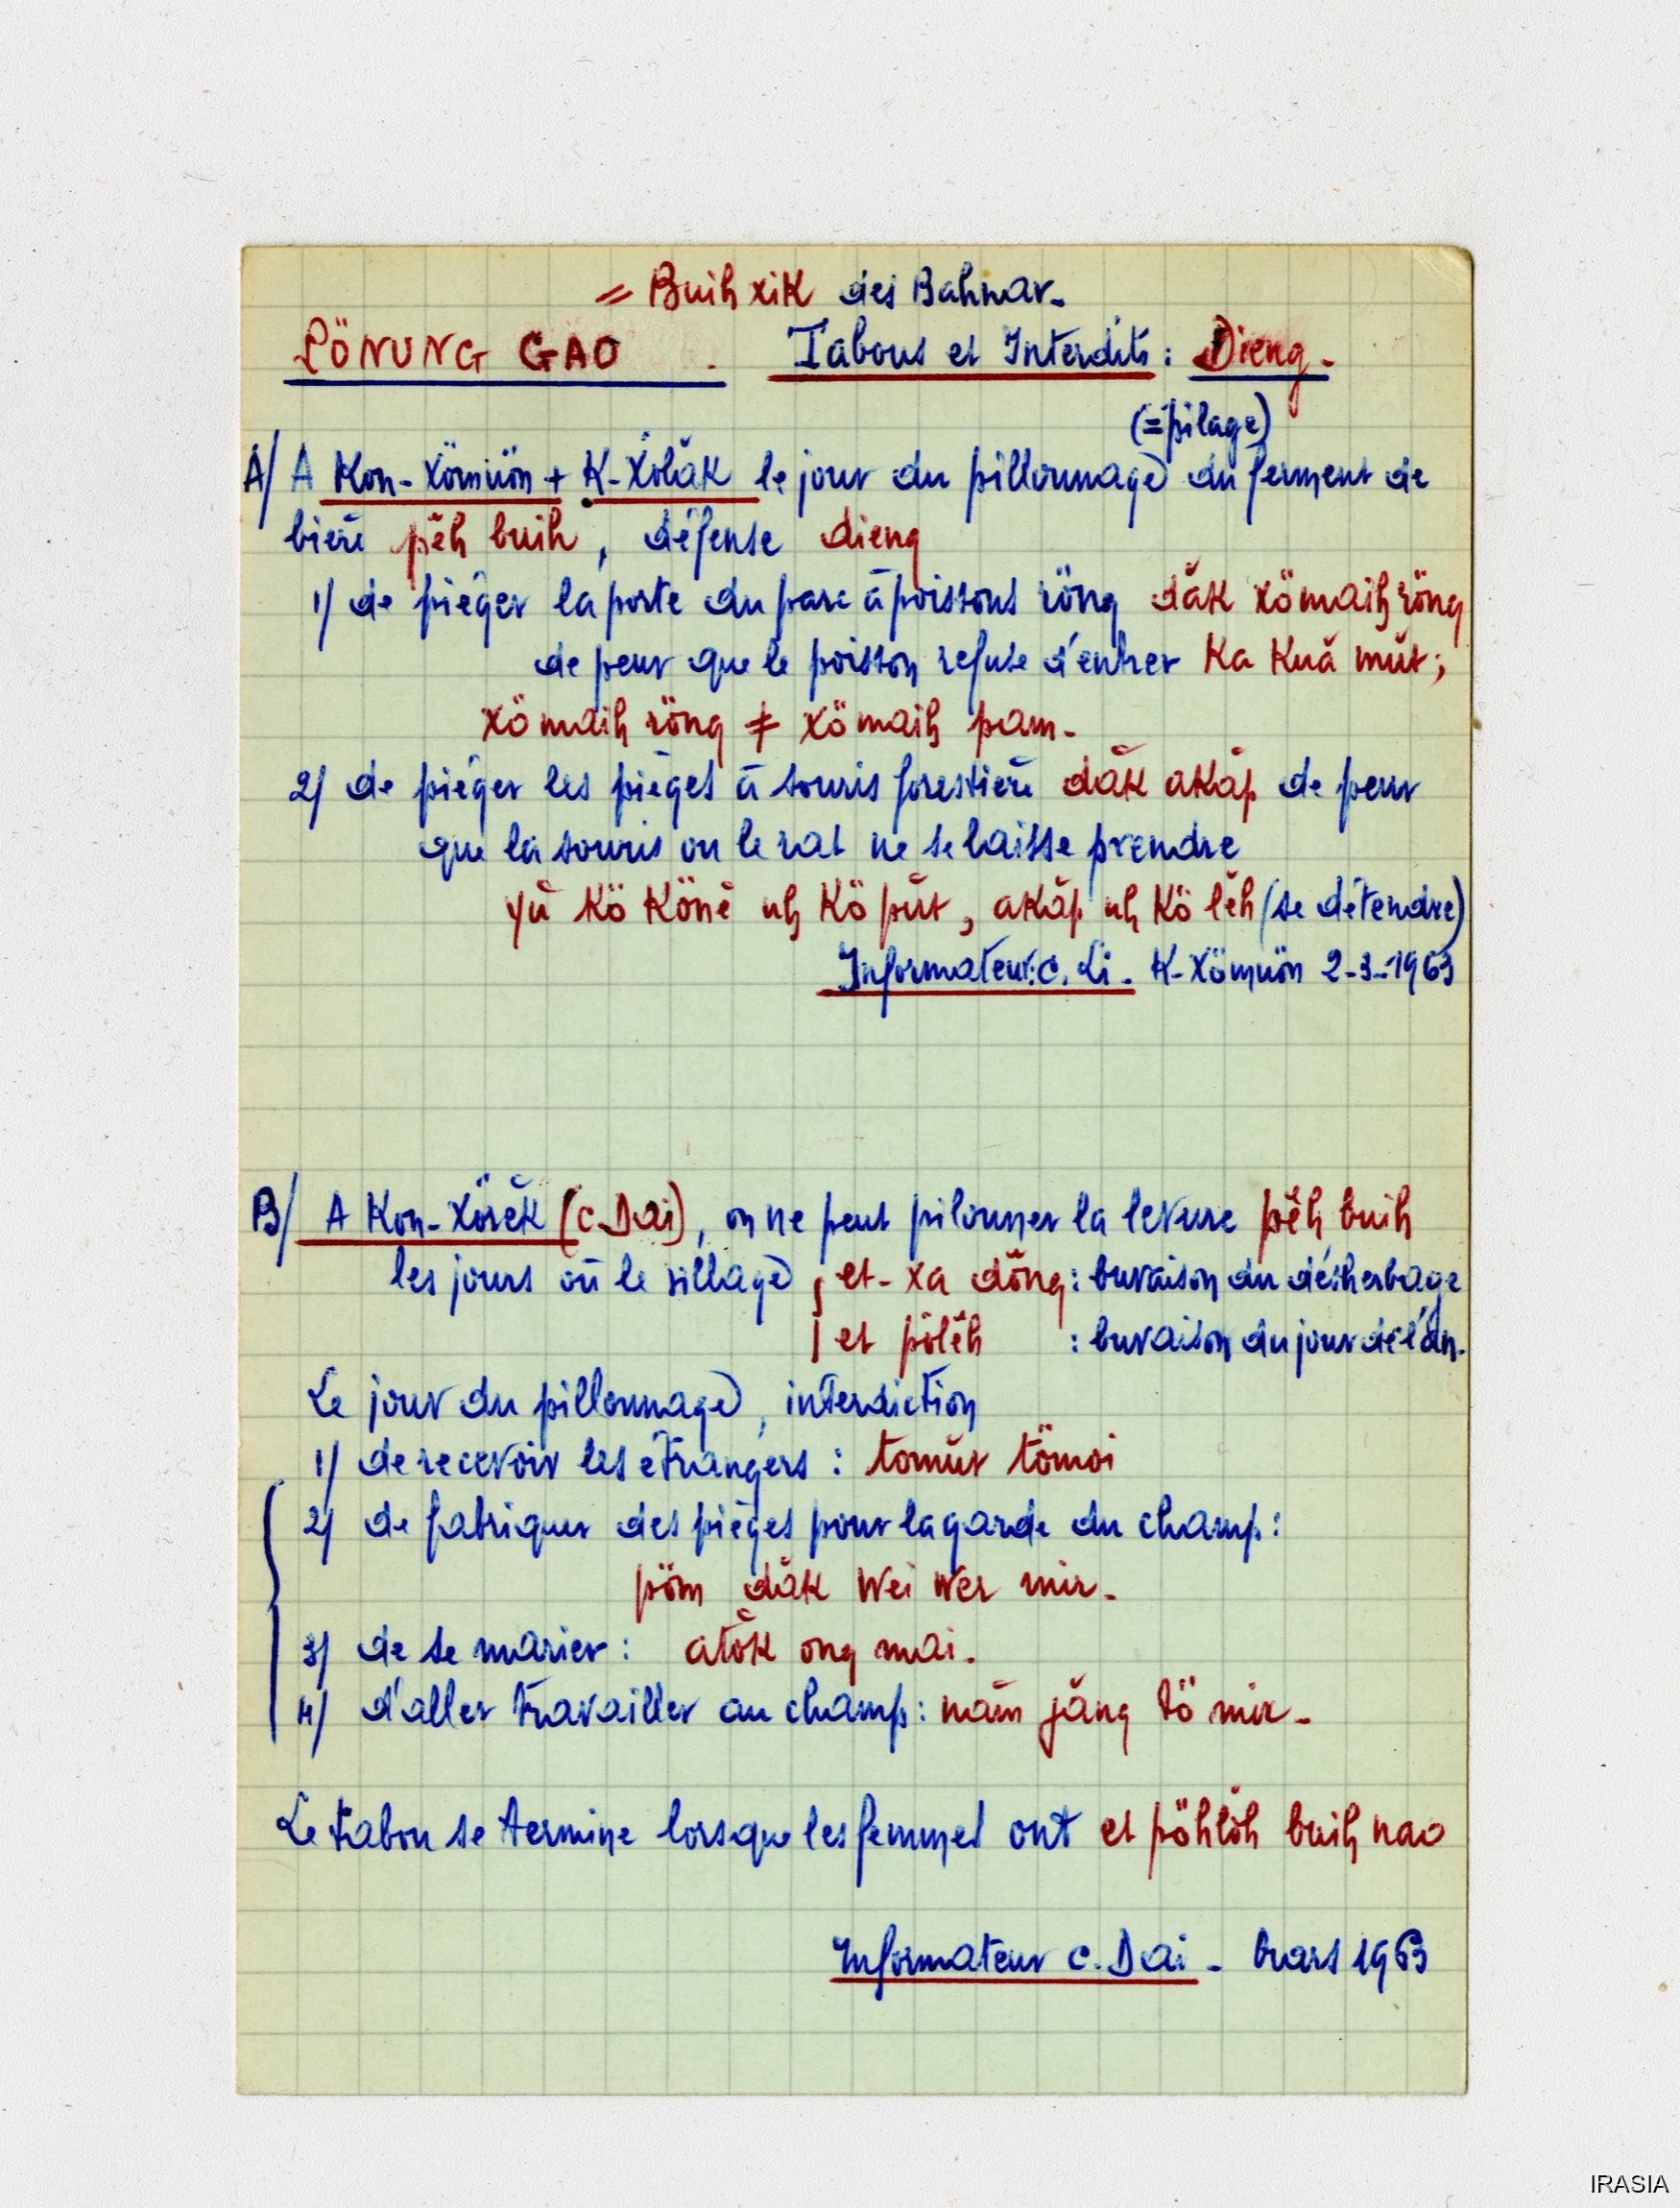 = Buih xik des Bahnar.
PÖNUNG GAO . Tabous et Interdits : Dieng.
(= pilage)
A/ A Kon-Xömuön + K-Xölăk le jour du pillonnage du ferment de
bière pĕh buih, défense dieng
1/ de piéger la porte du parc à poissons röng dăk xömaih röng
de peur que le poisson refuse d'entrer Ka Kuă mŭt;
xömaih röng ≠ xömaih pam.
2/ de piéger les pièges à souris forestière dăk akăp de peur
que la souris ou le rat ne se laisse prendre
yŭ kö könĕ uh kö pŭt, akăp uh kö lĕh (se détendre)
Informateur: C. Li. K-Xömuön 2-3-1963
B/ A Kon-Xörĕk (C. Dai), on ne peut pilonner la levure pĕh buih
les jours où le village ; et-xa dŏng : buvaison du désherbage
| et pölĕh : buvaison du jour de l'an.
Le jour du pillonnage, interdiction
1/ de recevoir les étrangers : tomŭr tömoi
2/ de fabriquer des pièges pour la garde du champ :
pöm dăk wei wer mir.
3/ de se marier : atŏk ong mai.
4/ d'aller travailler au champ : năm jăng tö mir.
Le tabou se termine lorsque les femmes ont et pöhlŏh buih nao
Informateur C. Dai - Mars 1963
IRASIA